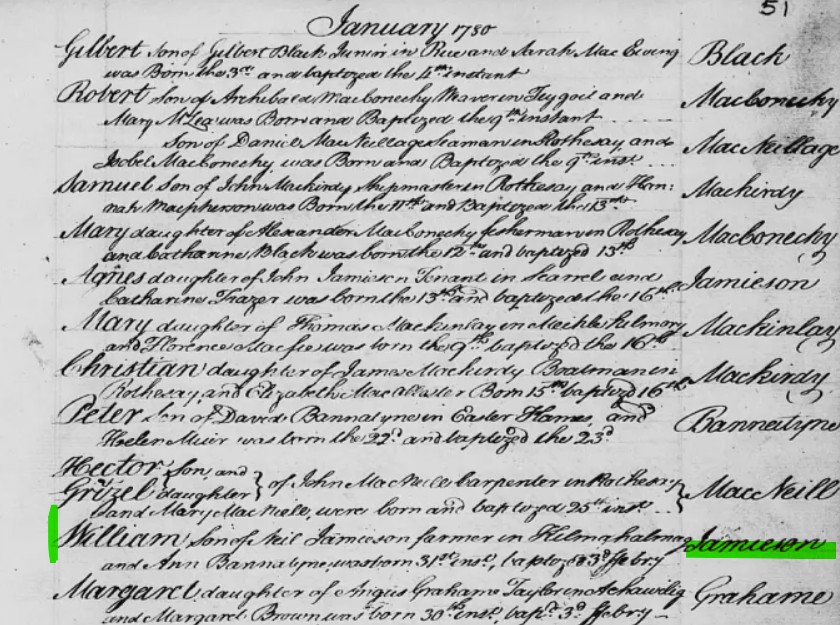 51
January 1780
Gilbert son of Gilbert Black Junior in and Sarah Mac Ewing Black
was Born the 3rd and baptized the 4th instant
Robert son of Archibald Macconechy Weaver in and Macconechy
Mary McLea was Born and Baptized the 9th instant
son of Daniel MacNeillage Seaman in Rothesay, and MacNeillage
Isobel Macconechy, was Born and Baptized the 9th inst
Samuel son of John Mackirdy Shipmaster in Rothesay and Han: Mackirdy
nah Macpherson was Born the 11th and Baptized the 13th
Mary daughter of Alexander Macconechy fisherman in Rothesay Macconechy
and Catharine Black was born the 12th and baptized 13th
Agnes daughter of John Jamieson Tenant in and Jamieson
Catharine Frazer was born the 13th and baptized the 16th
Mary daughter of Thomas Mackinlay in Meikle Kilmory Mackinlay
and Florence Macfie was born the 9th baptized the 16th
Christian daughter of James Mackirdy Boatman in Mackirdy
Rothesay and Elizabeth Macallester Born 15th baptized 16th
Peter son of David Bannatyne in Easter and Bannatyne
Helen Muir was born the 22d and baptized the 23d
Hector son, and
Grizel daughter } of John MacNeill Carpenter in Rothesay } MacNeill
and Mary MacNeill, were born and baptized 25th inst
William son of Neil Jamieson farmer in Jamieson
and Ann Bannatyne, was born 31st inst, baptized 3d ffebry
Margaret daughter of Angus Grahame Taylor in Grahame
and Margaret Brown was born 30th inst, bapt. 3d ffebry